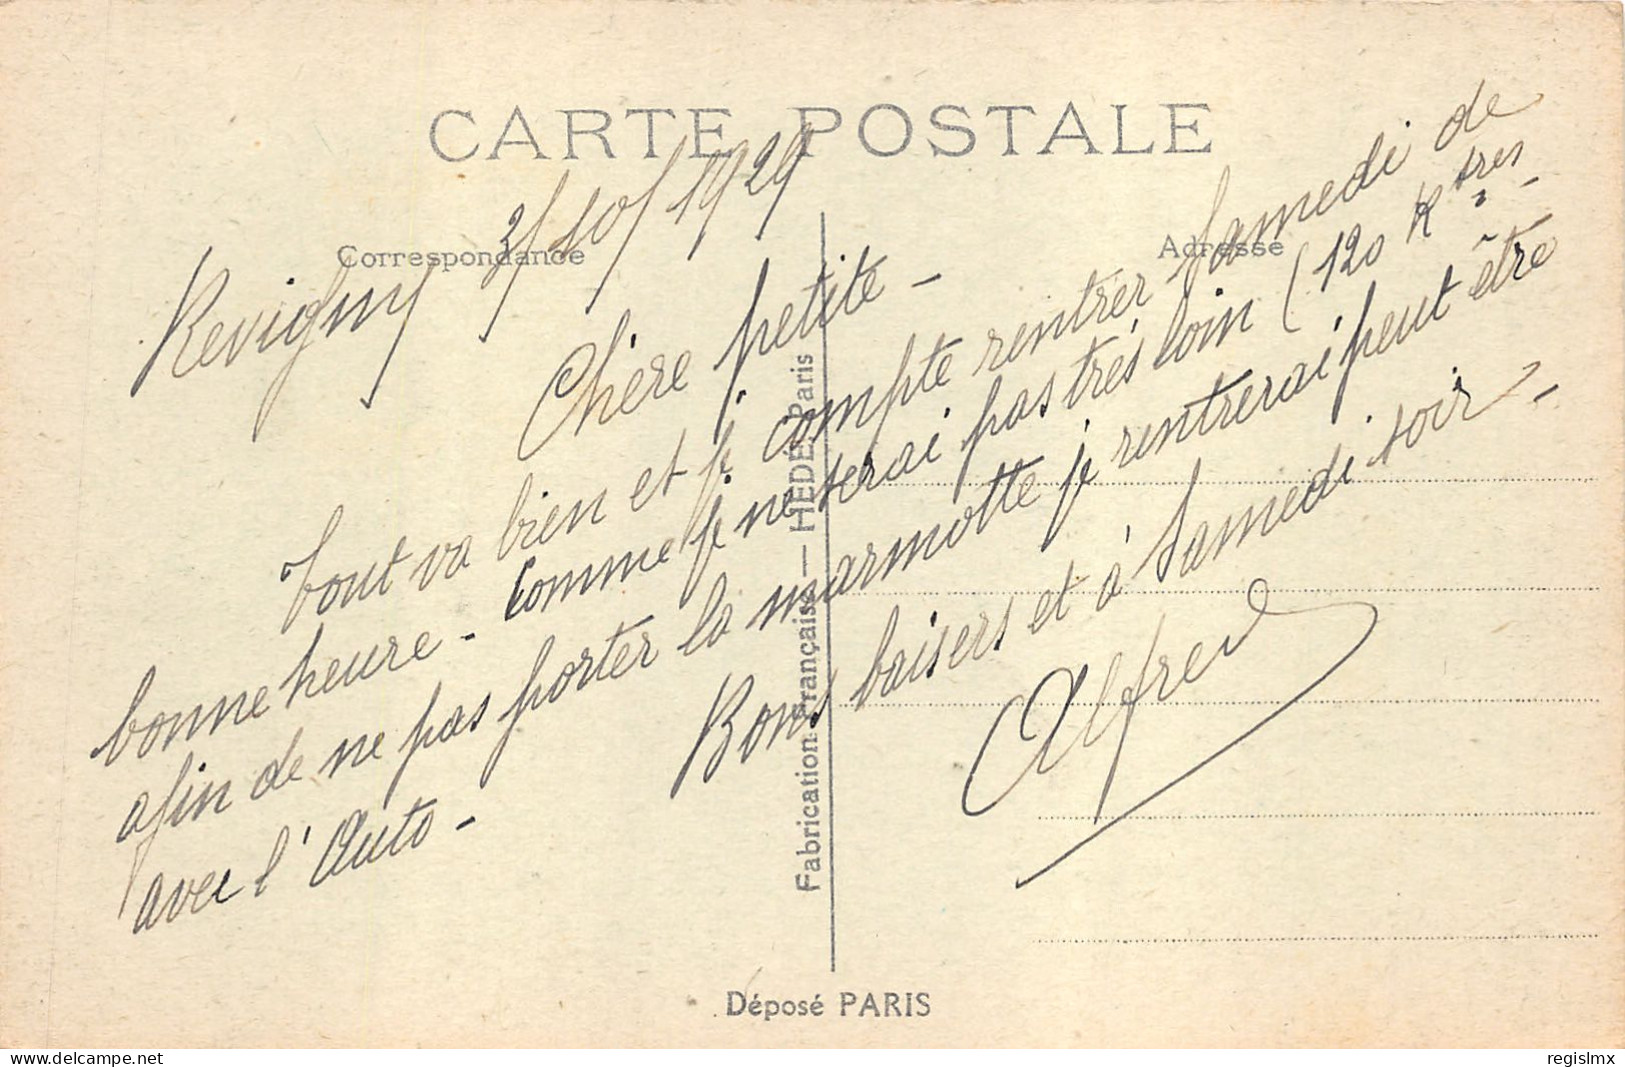 CARTE POSTALE
Correspondance
Adresse
Revigny 3/10/1929
Chère petite -
Tout va bien et je compte rentrer Samedi de
bonne heure - Comme je ne serai pas très loin (120 Ktres -
afin de ne pas porter la marmotte je rentrerai peut être
avec l'Auto -
Bons baisers et à Samedi soir -
Alfred
Fabrication Française — HEDÉ, Paris
Déposé PARIS
delcampe.net
regislmx